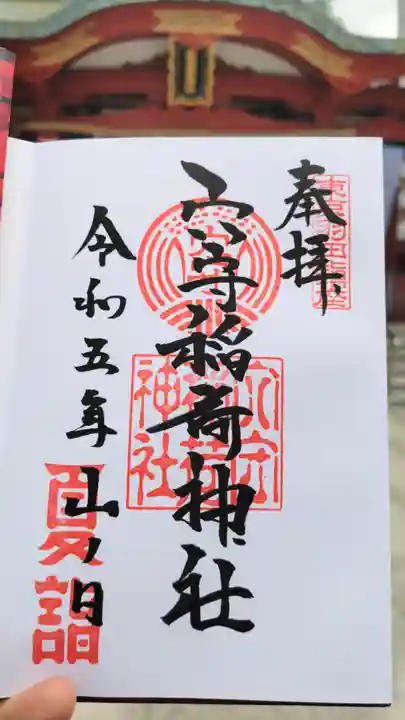 奉拝
穴守稲荷神社
穴守
稲荷
神社
令和五年
山ノ日
夏詣